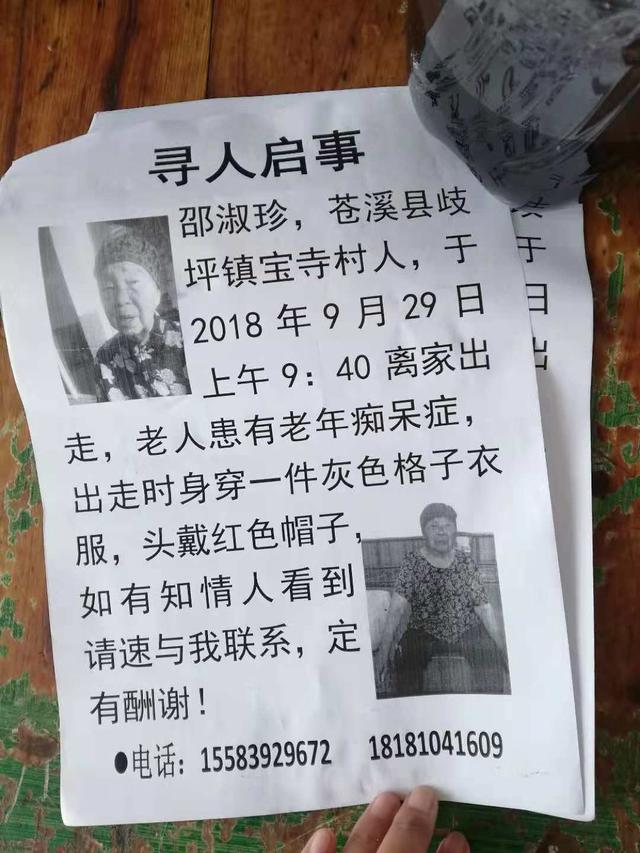 寻人启事
邵淑珍，苍溪县歧
坪镇宝寺村人，于
2018年9月29日
上午9：40离家出
走，老人患有老年痴呆症，
出走时身穿一件灰色格子衣
服，头戴红色帽子，
如有知情人看到
请速与我联系，定
有酬谢！
●电话：15583929672 18181041609
于
日
出